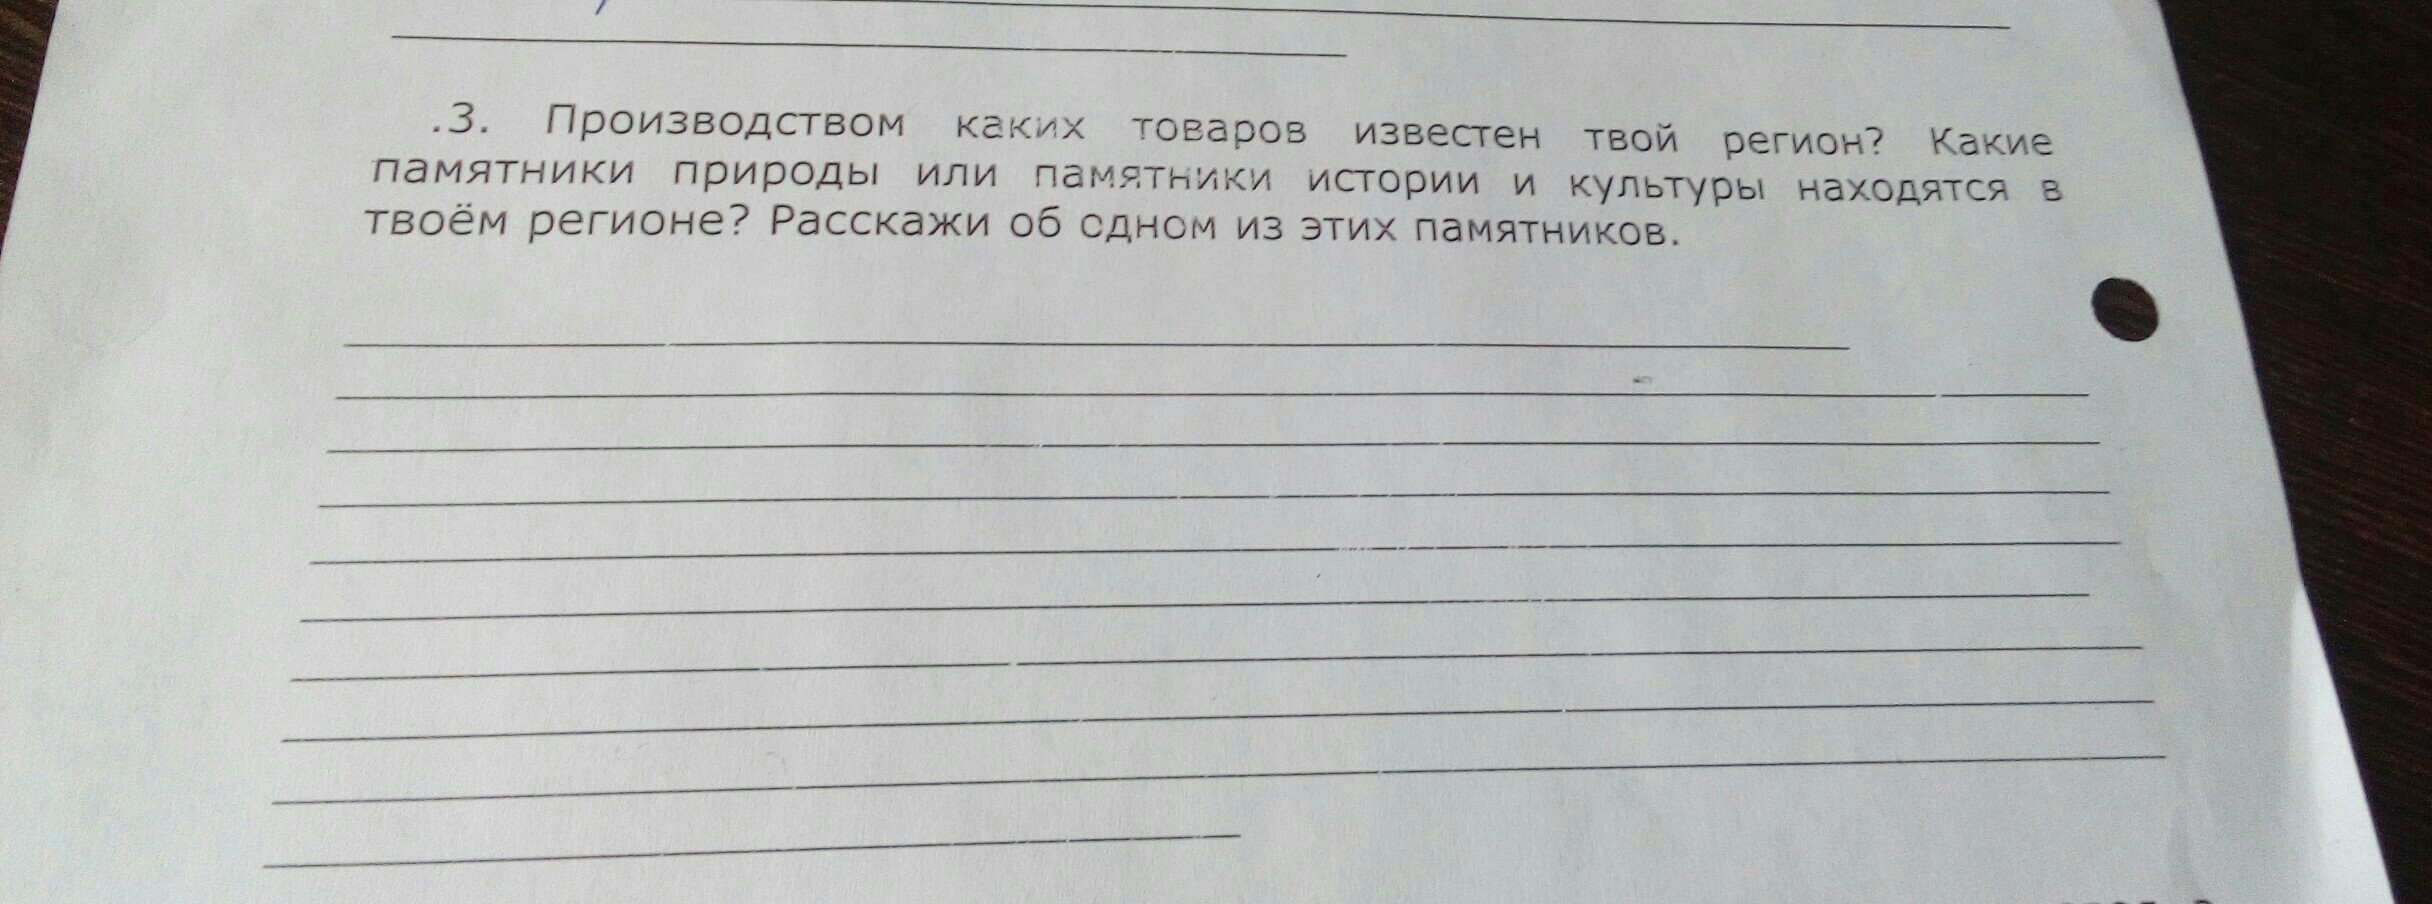 .3. Производством каких товаров известен твой регион? Какие
памятники природы или памятники истории и культуры находятся в
твоём регионе? Расскажи об одном из этих памятников.